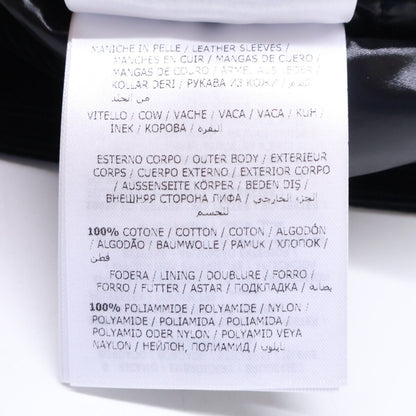 MANICHE IN PELLE / LEATHER SLEEVES /
MANCHES EN CUIR / MANGAS DE CUERO /
MANGAS DE COURO / ÄRMEL AUS LEDER /
KOLLAR DERI / РУКАВА ИЗ КОЖИ /
من الجلد
VITELLO / COW / VACHE / VACA / VACA / KUH /
INEK / КОРОВА / البقرة
ESTERNO CORPO / OUTER BODY / EXTERIEUR
CORPS / CUERPO EXTERNO / EXTERIOR CORPO
/ AUSSENSEITE KÖRPER / BEDEN DIŞ /
ВНЕШНЯЯ СТОРОНА ЛИФА / الجزء الخارجي
للجسم
100% COTONE / COTTON / COTON / ALGODÓN
/ ALGODÃO / BAUMWOLLE / PAMUK / ХЛОПОК /
قطن
FODERA / LINING / DOUBLURE / FORRO /
FORRO / FUTTER / ASTAR / ПОДКЛАДКА / بطانة
100% POLIAMMIDE / POLYAMIDE / NYLON /
POLYAMIDE / POLIAMIDA / POLIAMIDA /
POLYAMID ODER NYLON / POLYAMID VEYA
NAYLON / НЕЙЛОН, ПОЛИАМИД / نايلون